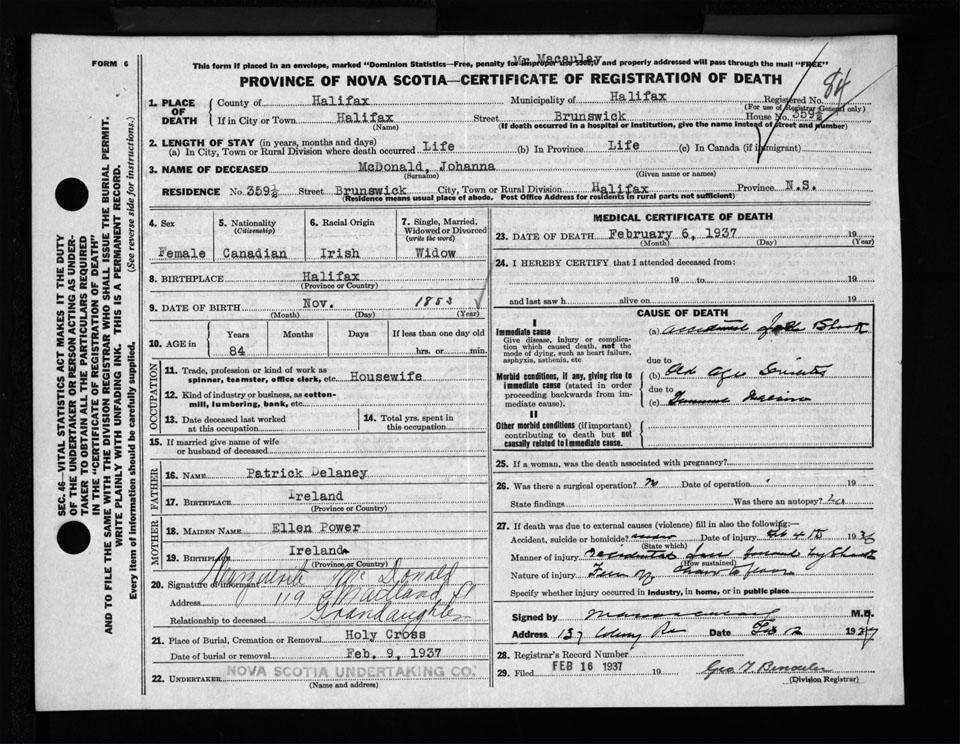 FORM 6
Mr. Macaulay
This form if placed in an envelope, marked "Dominion Statistics—Free, penalty for improper use $300, and properly addressed will pass through the mail "FREE"
PROVINCE OF NOVA SCOTIA—CERTIFICATE OF REGISTRATION OF DEATH
84
1. PLACE OF DEATH
County of Halifax Municipality of Halifax Registered No.
(For use of Registrar General only)
If in City or Town Halifax Street Brunswick House No. 359½
(Name) (If death occurred in a hospital or institution, give the name instead of street and number)
2. LENGTH OF STAY (in years, months and days)
(a) In City, Town or Rural Division where death occurred Life (b) In Province Life (c) In Canada (if immigrant)
3. NAME OF DECEASED McDonald, Johanna
(Surname) (Given name or names)
RESIDENCE No. 359½ Street Brunswick City, Town or Rural Division Halifax Province N.S.
(Residence means usual place of abode. Post Office Address for residents in rural parts not sufficient)
4. Sex 5. Nationality 6. Racial Origin 7. Single, Married,
(Citizenship) Widowed or Divorced
(write the word)
Female Canadian Irish Widow
8. BIRTHPLACE Halifax
(Province or Country)
9. DATE OF BIRTH Nov. 1853
(Month) (Day) (Year)
10. AGE in Years Months Days If less than one day old
84 hrs. or min.
OCCUPATION
11. Trade, profession or kind of work as
spinner, teamster, office clerk, etc. Housewife
12. Kind of industry or business, as cotton-
mill, lumbering, bank, etc.
13. Date deceased last worked
at this occupation
14. Total yrs. spent in
this occupation
15. If married give name of wife
or husband of deceased
FATHER
16. NAME Patrick Delaney
17. BIRTHPLACE Ireland
(Province or Country)
MOTHER
18. MAIDEN NAME Ellen Power
19. BIRTHPLACE Ireland
(Province or Country)
20. Signature of informant Marguerite McDonald
Address 119 Maitland St
Relationship to deceased Grandaughter
21. Place of Burial, Cremation or Removal Holy Cross
Date of burial or removal Feb. 9, 1937
22. UNDERTAKER NOVA SCOTIA UNDERTAKING CO.
(Name and address)
MEDICAL CERTIFICATE OF DEATH
23. DATE OF DEATH February 6, 1937 19
(Month) (Day) (Year)
24. I HEREBY CERTIFY that I attended deceased from:
19 to 19
and last saw h alive on 19
CAUSE OF DEATH
I
Immediate cause
Give disease, injury or complica-
tion which caused death, not the
mode of dying, such as heart failure,
asphyxia, asthenia, etc
(a) Shock
due to
Morbid conditions, if any, giving rise to
immediate cause (stated in order
proceeding backwards from im-
mediate cause).
(b) Old Age
due to
(c)
II
Other morbid conditions (if important)
contributing to death but not
causally related to immediate cause.
25. If a woman, was the death associated with pregnancy?
26. Was there a surgical operation? No Date of operation 19
State findings Was there an autopsy?
27. If death was due to external causes (violence) fill in also the following:—
Accident, suicide or homicide? Date of injury 193
(State which)
Manner of injury accidental
(How sustained)
Nature of injury
Specify whether injury occurred in industry, in home, or in public place
Signed by M.D.
Address 137 Date Feb 1937
28. Registrar's Record Number
29. Filed FEB 16 1937 19
(Division Registrar)
SEC. 46—VITAL STATISTICS ACT MAKES IT THE DUTY
OF THE UNDERTAKER OR PERSON ACTING AS UNDER-
TAKER TO OBTAIN ALL THE PARTICULARS REQUIRED
IN THE "CERTIFICATE OF REGISTRATION OF DEATH"
AND TO FILE THE SAME WITH THE DIVISION REGISTRAR WHO SHALL ISSUE THE BURIAL PERMIT.
WRITE PLAINLY WITH UNFADING INK. THIS IS A PERMANENT RECORD.
Every item of information should be carefully supplied. (See reverse side for instructions.)